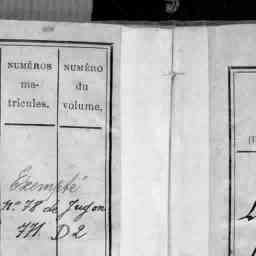 NUMÉROS
ma-
tricules.
NUMÉRO
du
volume.
Exempté
N.º 78 de Jugon
771. D 2